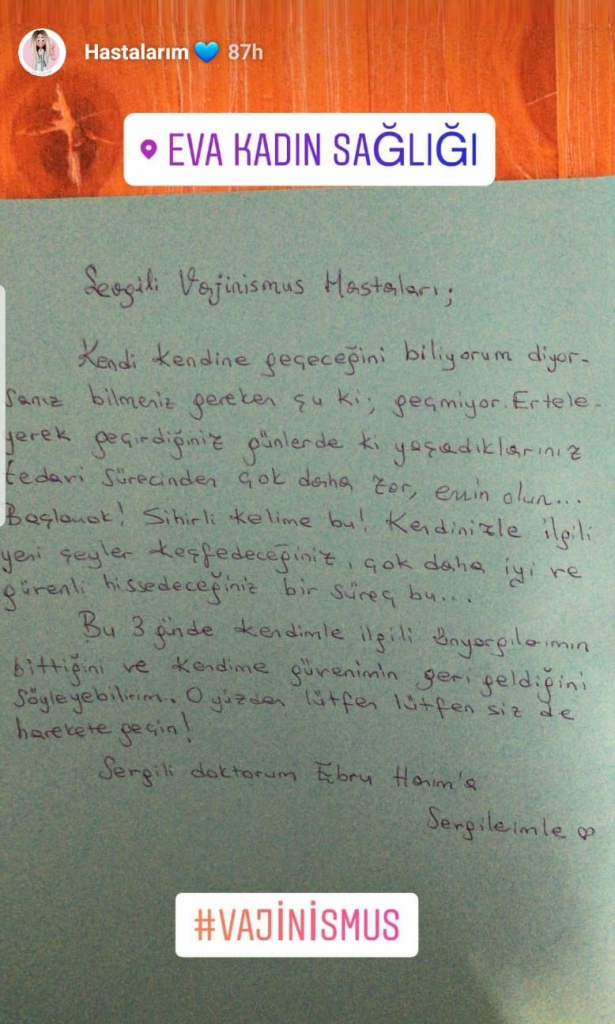 Hastalarım 💙 87h
EVA KADIN SAĞLIĞI
Sevgili Vajinismus Hastaları;
Kendi kendine geçeceğini biliyorum diyor-
sanız bilmeniz gereken şu ki; geçmiyor. Ertele-
yerek geçirdiğiniz günlerde ki yaşadıklarınız
tedavi sürecinden çok daha zor, emin olun...
Başlamak! Sihirli kelime bu! Kendinizle ilgili
yeni şeyler keşfedeceğiniz, çok daha iyi ve
güvenli hissedeceğiniz bir süreç bu...
Bu 3 günde kendimle ilgili önyargılarımın
bittiğini ve kendime güvenimin geri geldiğini
söyleyebilirim. O yüzden lütfen lütfen siz de
harekete geçin!
Sevgili doktorum Ebru Hanım'a
Sevgilerimle ♡
#VAJİNİSMUS